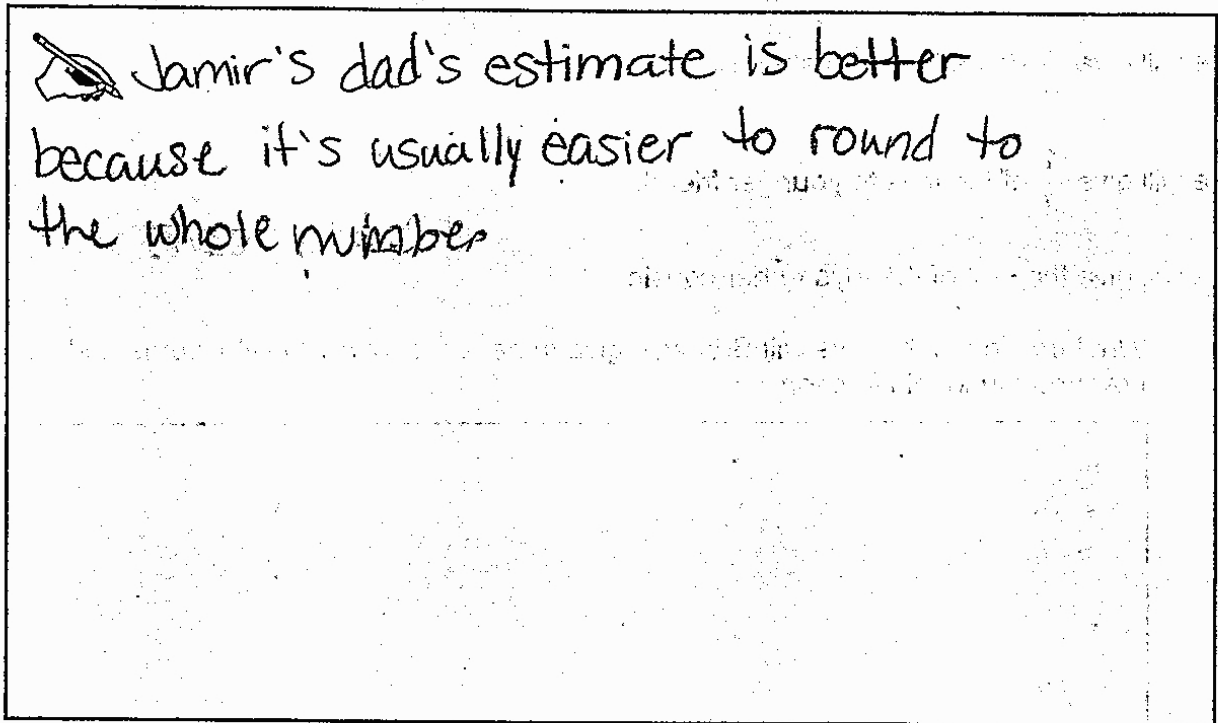 Jamir's dad's estimate is better
because it's usually easier to round to
the whole number